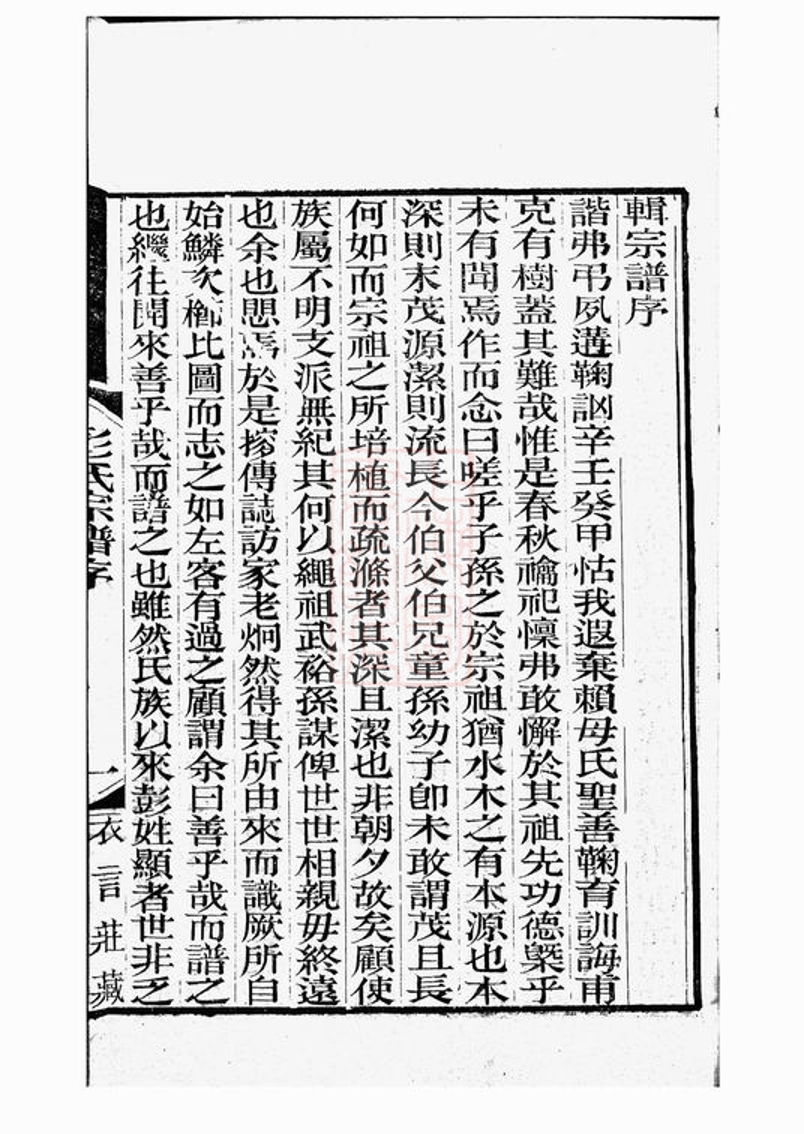 輯宗譜序
諧弗弔夙遘鞠訩辛壬癸甲怙我遐棄賴母氏聖善鞠育訓誨甫
克有樹蓋其難哉惟是春秋禴祀懍弗敢懈於其祖先功德槩乎
未有聞焉作而念曰嗟乎子孫之於宗祖猶水木之有本源也本
深則末茂源潔則流長今伯父伯兄童孫幼子卽未敢謂茂且長
何如而宗祖之所培植而疏滌者其深且潔也非朝夕故矣顧使
族屬不明支派無紀其何以繩祖武裕孫謀俾世世相親毋終遠
也余也思焉於是摉傳誌訪家老炯然得其所由來而識厥所自
始鱗次櫛比圖而志之如左客有過之顧謂余曰善乎哉而譜之
也繼往開來善乎哉而譜之也雖然氏族以來彭姓顯者世非乏
彭氏宗譜序 一 衣言莊藏